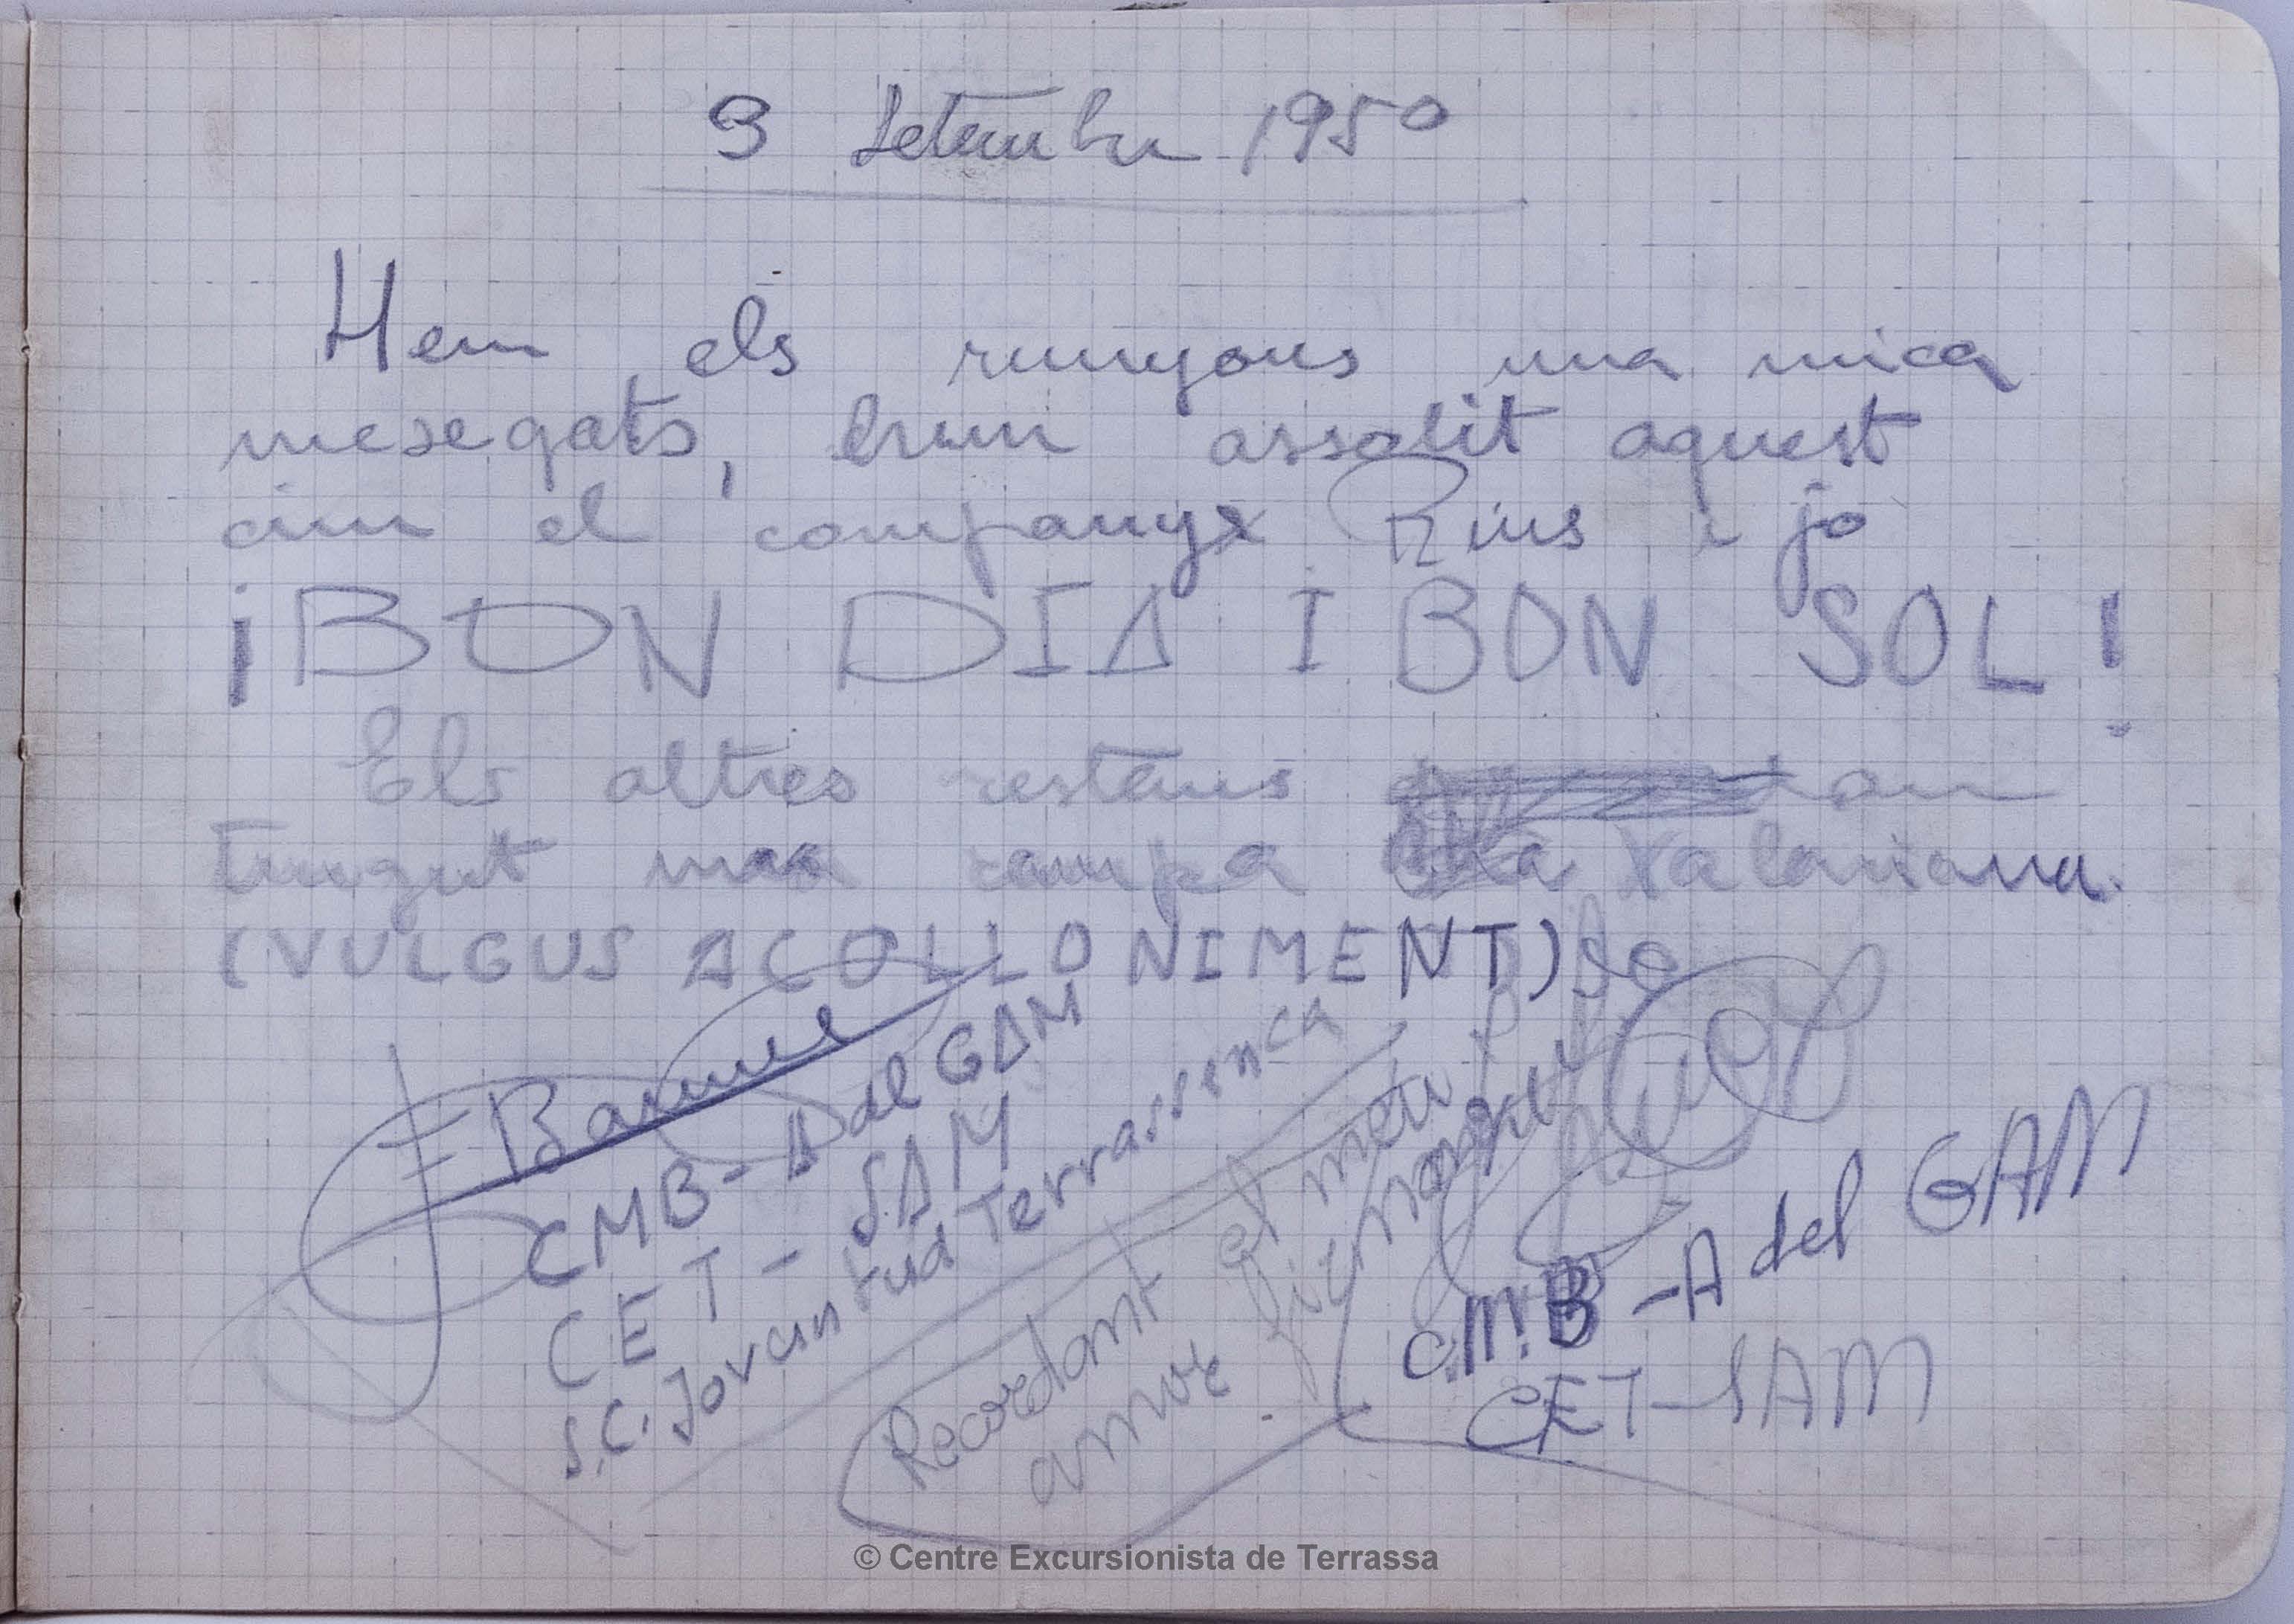 9 Setembre 1950
Hem els runyons una mica
mesegats, hem assolit aquest
cim el company Rius i jo
¡BON DIA I BON SOL!
Els altres restans an
tingut una rampa
(VULGUS ACOLLONIMENT)
CMB-A del GAM
CET-SAM
S.C. Joventud Terrassenca
Recordant el meu
amor
C.M.B-A del GAM
CET-SAM
© Centre Excursionista de Terrassa